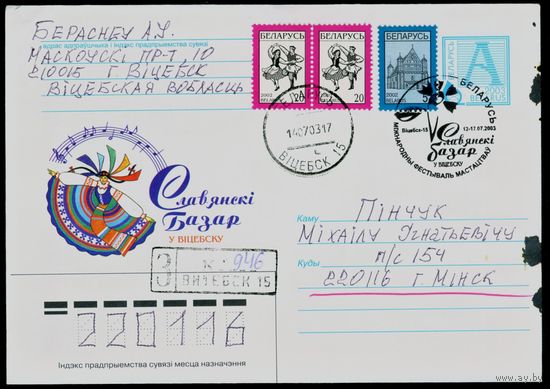 БЕРАСНЕУ А.У.
Адрас адпраўшчыка і індэкс прадпрыемства сувязі
МАСКОЎСКІ ПР-Т, 10
210015 Г. ВІЦЕБСК
ВІЦЕБСКАЯ ВОБЛАСЦЬ
БЕЛАРУСЬ
2002
20
БЕЛАРУСЬ
20
БЕЛАРУСЬ
2002
БЕЛАРУСЬ
A
2003
BELARUS
140703 17
ВІЦЕБСК 15
БЕЛАРУСЬ
Віцебск-15
12-17.07.2003
Славянскі
базар
У ВІЦЕБСКУ
МІЖНАРОДНЫ ФЕСТЫВАЛЬ МАСТАЦТВАЎ
Славянскі
Базар
У ВІЦЕБСКУ
З
946
ВИТЕБСК 15
Каму ПІНЧУК
МІХАІЛУ ІГНАТЬЕВІЧУ
П/С 154
Куды
220116 Г. МІНСК
220116
Індэкс прадпрыемства сувязі месца назначэння
www.ay.by